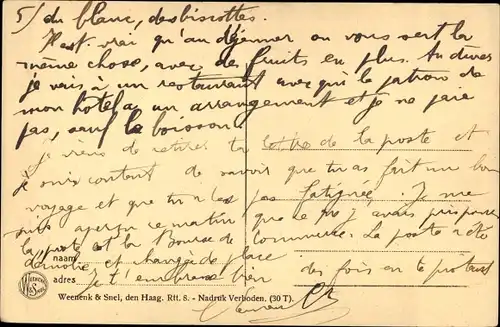 5/ du blanc, des biscottes.
Il est vrai qu'au déjeuner on vous sert la
même chose, avec des fruits en plus. Au diner
je vais à un restaurant avec qui le patron de
mon hôtel a un arrangement et je ne paie
pas, sauf la boisson.
je viens de retirer ta lettre de la poste et
je suis content de savoir que tu as fait un bon
voyage et que tu n'es pas fatiguée. Je me
suis aperçu ce matin que le j'avais
la poste et la Bourse de commerce. La poste a été
démolie et changée de place
des fois en te
naam
adres
Je t'embrasse bien
WEENENK & SNEL
Weenenk & Snel, den Haag. Rtt. 8. - Nadruk Verboden. (30 T).